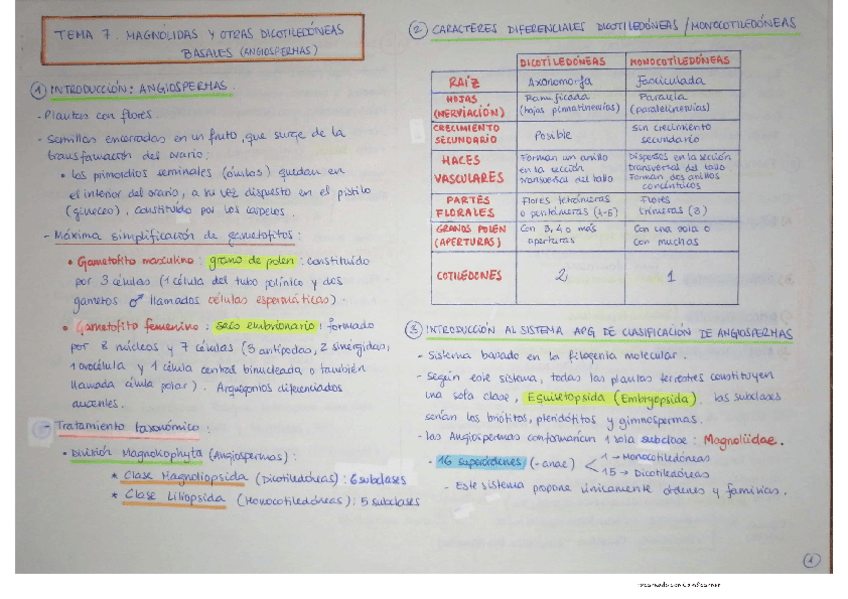 TEMA 7. MAGNÓLIDAS Y OTRAS DICOTILEDÓNEAS
BASALES (ANGIOSPERMAS)
① INTRODUCCIÓN: ANGIOSPERMAS.
- Plantas con flores.
- Semillas encerradas en un fruto, que surge de la
transformación del ovario:
• Los primordios seminales (óvulos) quedan en
el interior del ovario, a su vez dispuesto en el pistilo
(gineceo), constituido por los carpelos.
- Máxima simplificación de gametofitos:
• Gametofito masculino: grano de polen: constituido
por 3 células (1 célula del tubo polínico y dos
gametos ♂ llamados células espermáticas).
• Gametofito femenino: saco embrionario: formado
por 8 núcleos y 7 células (3 antípodas, 2 sinérgidas,
1 ovocélula y 1 célula central binucleada o también
llamada célula polar). Arquegonios diferenciados
ausentes.
- Tratamiento taxonómico:
• División Magnoliophyta (Angiospermas):
* Clase Magnoliopsida (Dicotiledóneas): 6 subclases
* Clase Liliopsida (Monocotiledóneas): 5 subclases
② CARACTERES DIFERENCIALES DICOTILEDÓNEAS/MONOCOTILEDÓNEAS
DICOTILEDÓNEAS MONOCOTILEDÓNEAS
RAÍZ Axonomorfa Fasciculada
HOJAS (NERVIACIÓN) Ramificada (hojas pinnatinervias) Paralela (paralelinervias)
CRECIMIENTO SECUNDARIO Posible Sin crecimiento secundario
HACES VASCULARES Forman un anillo en la sección transversal del tallo Dispersos en la sección transversal del tallo Forman dos anillos concéntricos
PARTES FLORALES Flores tetrámeras o pentámeras (4-5) Flores trímeras (3)
GRANOS POLEN (APERTURAS) Con 3, 4 o más aperturas Con una sola o con muchas
COTILEDONES 2 1
③ INTRODUCCIÓN AL SISTEMA APG DE CLASIFICACIÓN DE ANGIOSPERMAS
- Sistema basado en la filogenia molecular.
- Según este sistema, todas las plantas terrestres constituyen
una sola clase, Equisetopsida (Embryopsida). Las subclases
serían los briófitos, pteridófitos y gimnospermas.
- Las Angiospermas conformarían 1 sola subclase: Magnoliidae.
- 16 superórdenes (-anae) < 1 → Monocotiledóneas
15 → Dicotiledóneas
- Este sistema propone únicamente órdenes y familias.
1